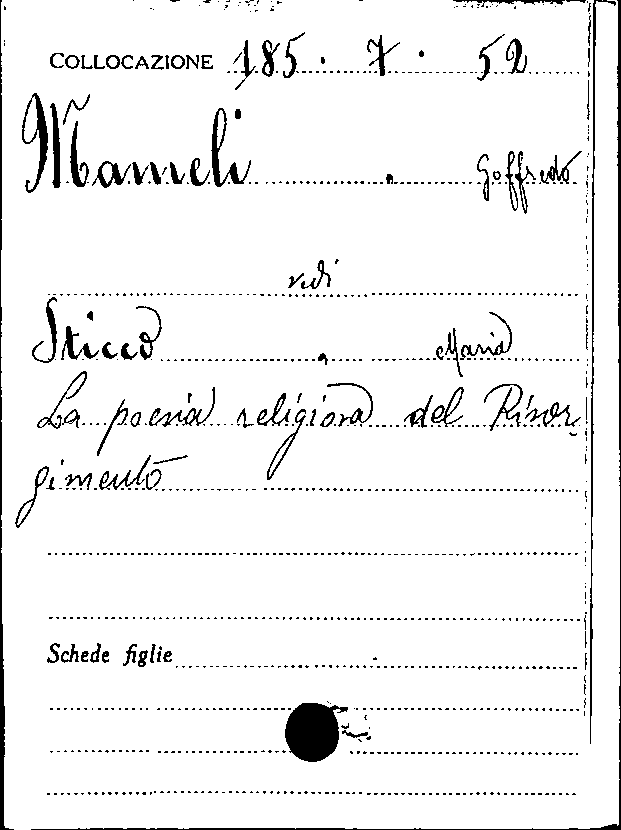 COLLOCAZIONE 185 · 7 · 52
Mameli . Goffredo
vedi
Sticco , Maria
La poesia religiosa del Risor-
gimento
Schede figlie